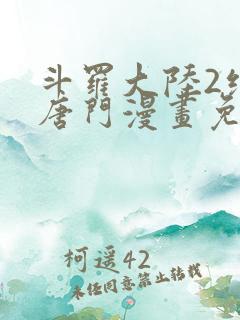 斗羅大陸2
唐門漫畫免
柯遥42
未经同意禁止转载